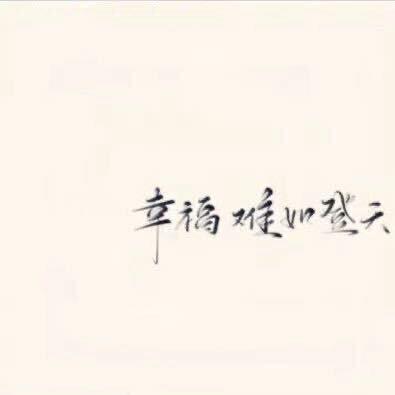 幸福难如登天